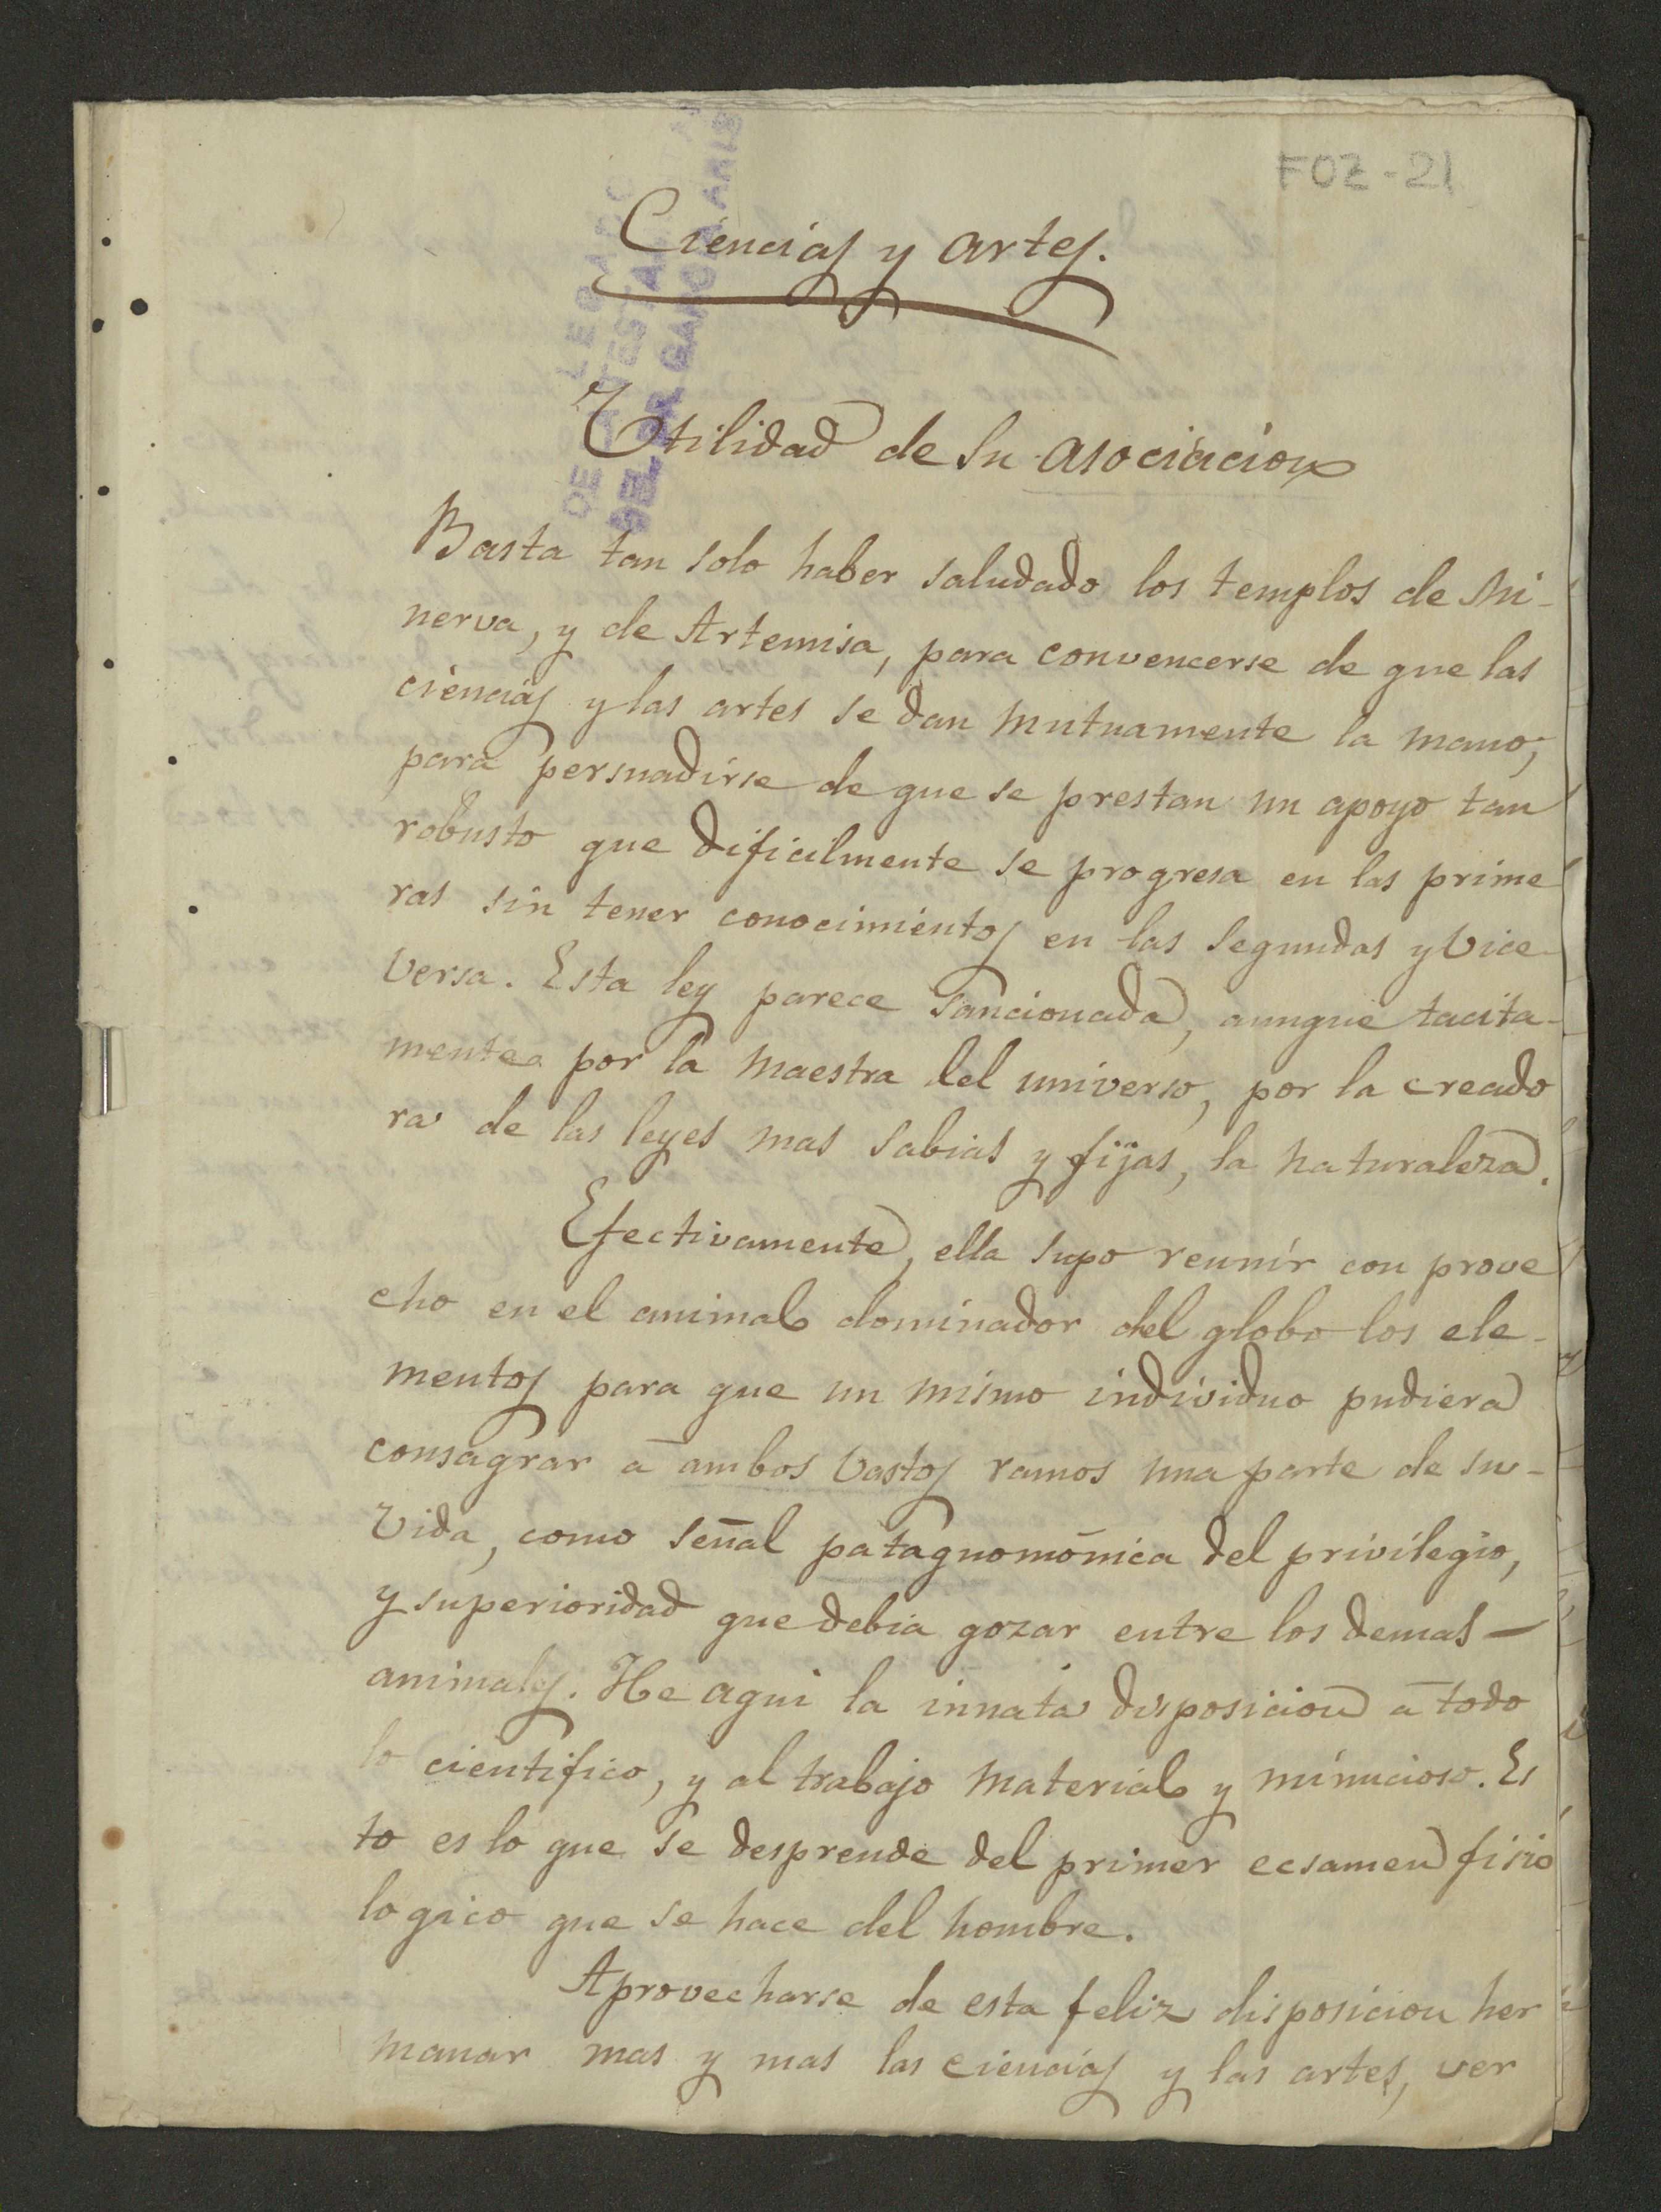 FOZ-21
Ciencias y artes.
Utilidad de su asociacion
Basta tan solo haber saludado los templos de Mi-
nerva, y de Artemisa, para convencerse de que las
ciencias y las artes se dan mutuamente la mano;
para persuadirse de que se prestan un apoyo tan
robusto que dificilmente se progresa en las prime
ras sin tener conocimientos en las segundas y vice-
versa. Esta ley parece sancionada, aunque tacita-
mente por la maestra del universo, por la creado
ra de las leyes mas sabias y fijas, la naturaleza.
Efectivamente, ella supo reunir con prove
cho en el animal dominador del globo los ele-
mentos para que un mismo individuo pudiera
consagrar a ambos vastos ramos una parte de su-
vida, como señal patagnomónica del privilegio,
y superioridad que debia gozar entre los demas-
animales. He aqui la innata disposicion a todo
lo cientifico, y al trabajo material y minucioso. Es
to es lo que se desprende del primer ecsamen fisio
logico que se hace del hombre.
Aprovecharse de esta feliz disposicion her
manar mas y mas las ciencias y las artes, ver